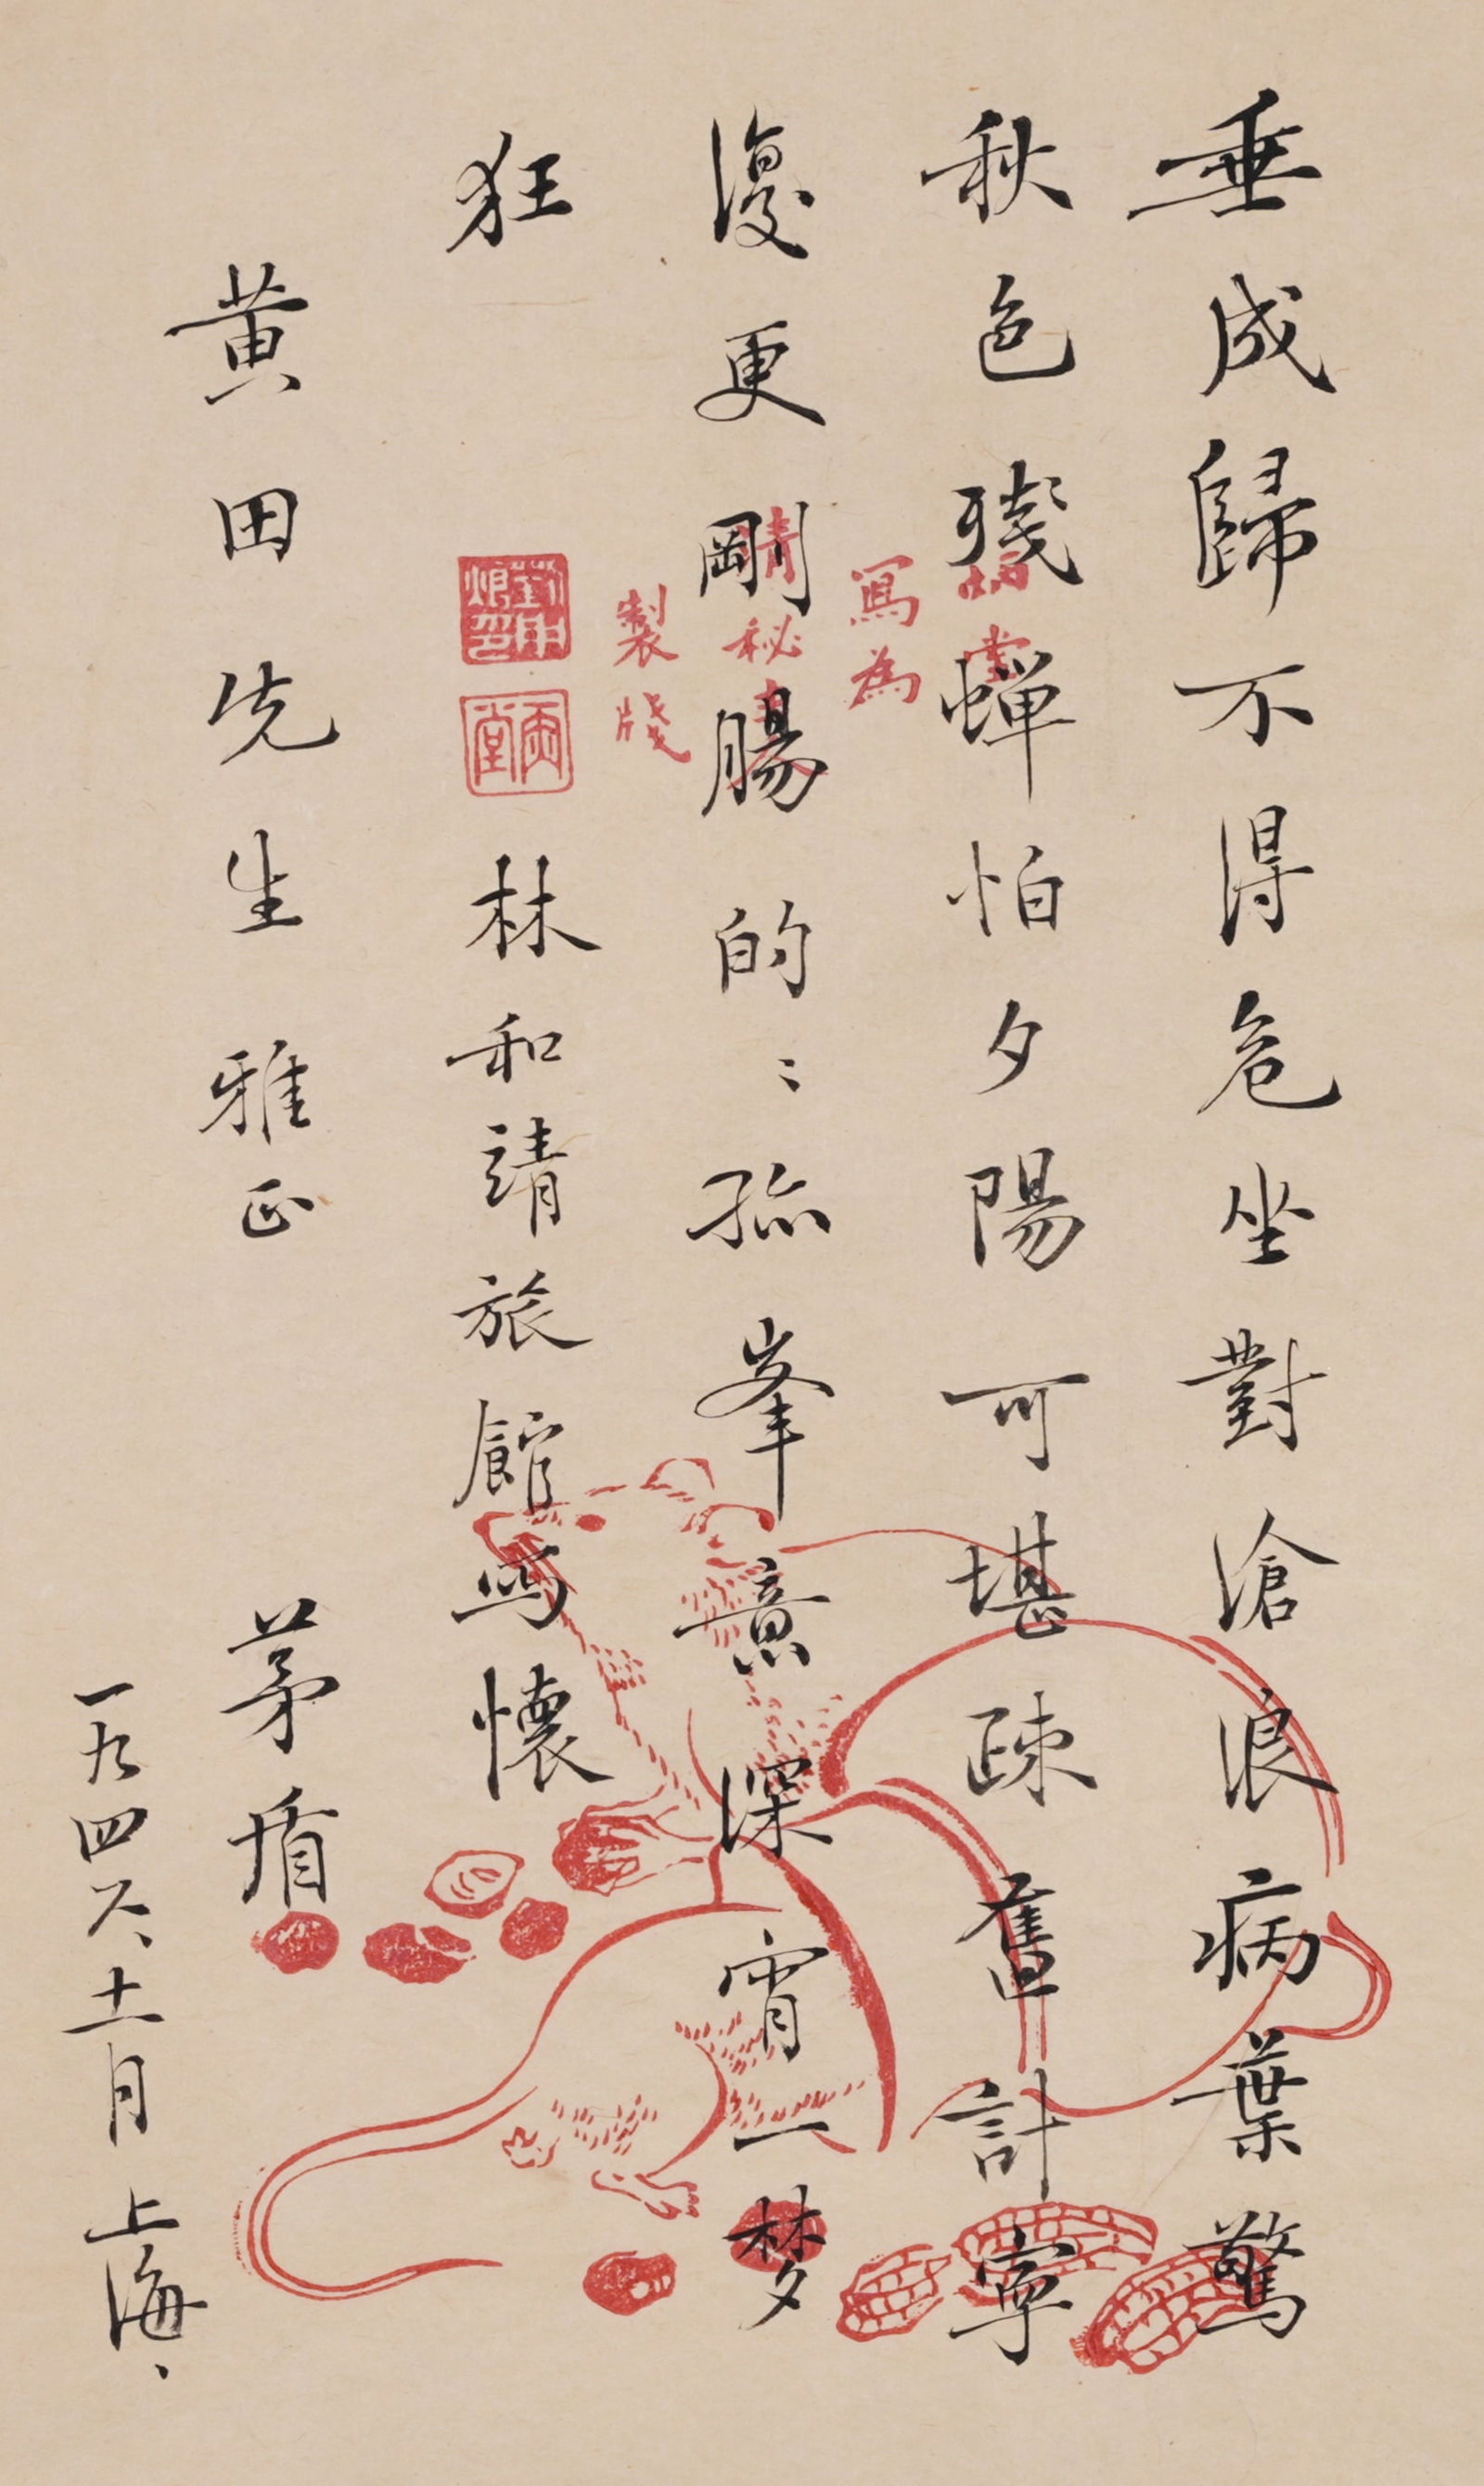 垂成歸不得危坐對滄浪病葉驚
秋色殘蟬怕夕陽可堪疎舊計寧
復更剛腸的〻孤峯意深宵一梦
狂
林和靖旅館写懷
黄田先生雅正
茅盾
一九四六、十一月上海、
寫為
製牋